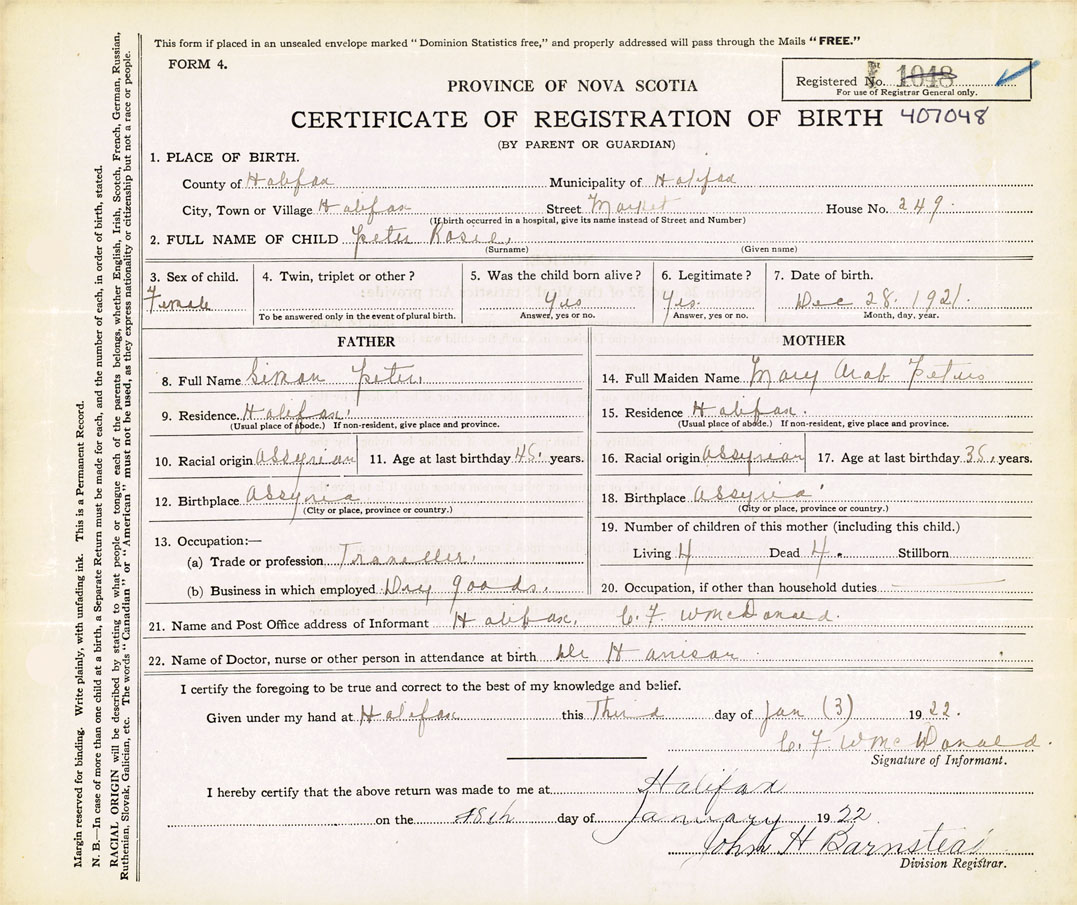 This form if placed in an unsealed envelope marked "Dominion Statistics free," and properly addressed will pass through the Mails "FREE."
FORM 4.
Registered No. 1048
For use of Registrar General only.
PROVINCE OF NOVA SCOTIA
CERTIFICATE OF REGISTRATION OF BIRTH 407048
(BY PARENT OR GUARDIAN)
1. PLACE OF BIRTH.
County of Halifax Municipality of Halifax
City, Town or Village Halifax Street Market House No. 249.
(If birth occurred in a hospital, give its name instead of Street and Number)
2. FULL NAME OF CHILD Peter Rosie,
(Surname) (Given name)
3. Sex of child. 4. Twin, triplet or other? 5. Was the child born alive? 6. Legitimate? 7. Date of birth.
Female Yes Yes. Dec 28. 1921.
To be answered only in the event of plural birth. Answer, yes or no. Answer, yes or no. Month, day, year.
FATHER
8. Full Name Simon Peter,
9. Residence Halifax.
(Usual place of abode.) If non-resident, give place and province.
10. Racial origin Assyrian 11. Age at last birthday 45. years.
12. Birthplace Assyria
(City or place, province or country.)
13. Occupation:—
(a) Trade or profession Traveller.
(b) Business in which employed Dry goods.
MOTHER
14. Full Maiden Name Mary Arab Peters
15. Residence Halifax.
(Usual place of abode.) If non-resident, give place and province.
16. Racial origin Assyrian 17. Age at last birthday 35. years.
18. Birthplace Assyria
(City or place, province or country.)
19. Number of children of this mother (including this child.)
Living 4 Dead 4. Stillborn
20. Occupation, if other than household duties
21. Name and Post Office address of Informant Halifax. C. F. WMcDonald.
22. Name of Doctor, nurse or other person in attendance at birth Harrison
I certify the foregoing to be true and correct to the best of my knowledge and belief.
Given under my hand at Halifax this Third day of Jan (3) 1922.
C. F. WMcDonald.
Signature of Informant.
I hereby certify that the above return was made to me at Halifax
on the 18th day of January 1922
John H Barnstead
Division Registrar.
Margin reserved for binding. Write plainly, with unfading ink. This is a Permanent Record.
N. B.—In case of more than one child at a birth, a Separate Return must be made for each, and the number of each, in order of birth, stated.
RACIAL ORIGIN will be described by stating to what people or tongue each of the parents belongs, whether English, Irish, Scotch, French, German, Russian,
Ruthenian, Slovak, Galician, etc. The words "Canadian" or "American" must not be used, as they express nationality or citizenship but not a race or people.